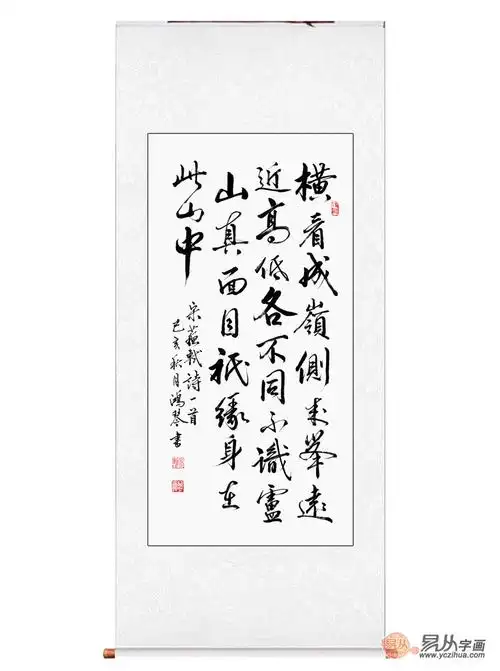 橫看成嶺側成峯遠
近高低各不同不識盧
山真面目祇緣身在
此山中
宋蘇軾詩一首
己亥秋月鴻琴書
易从字画
www.yczihua.com